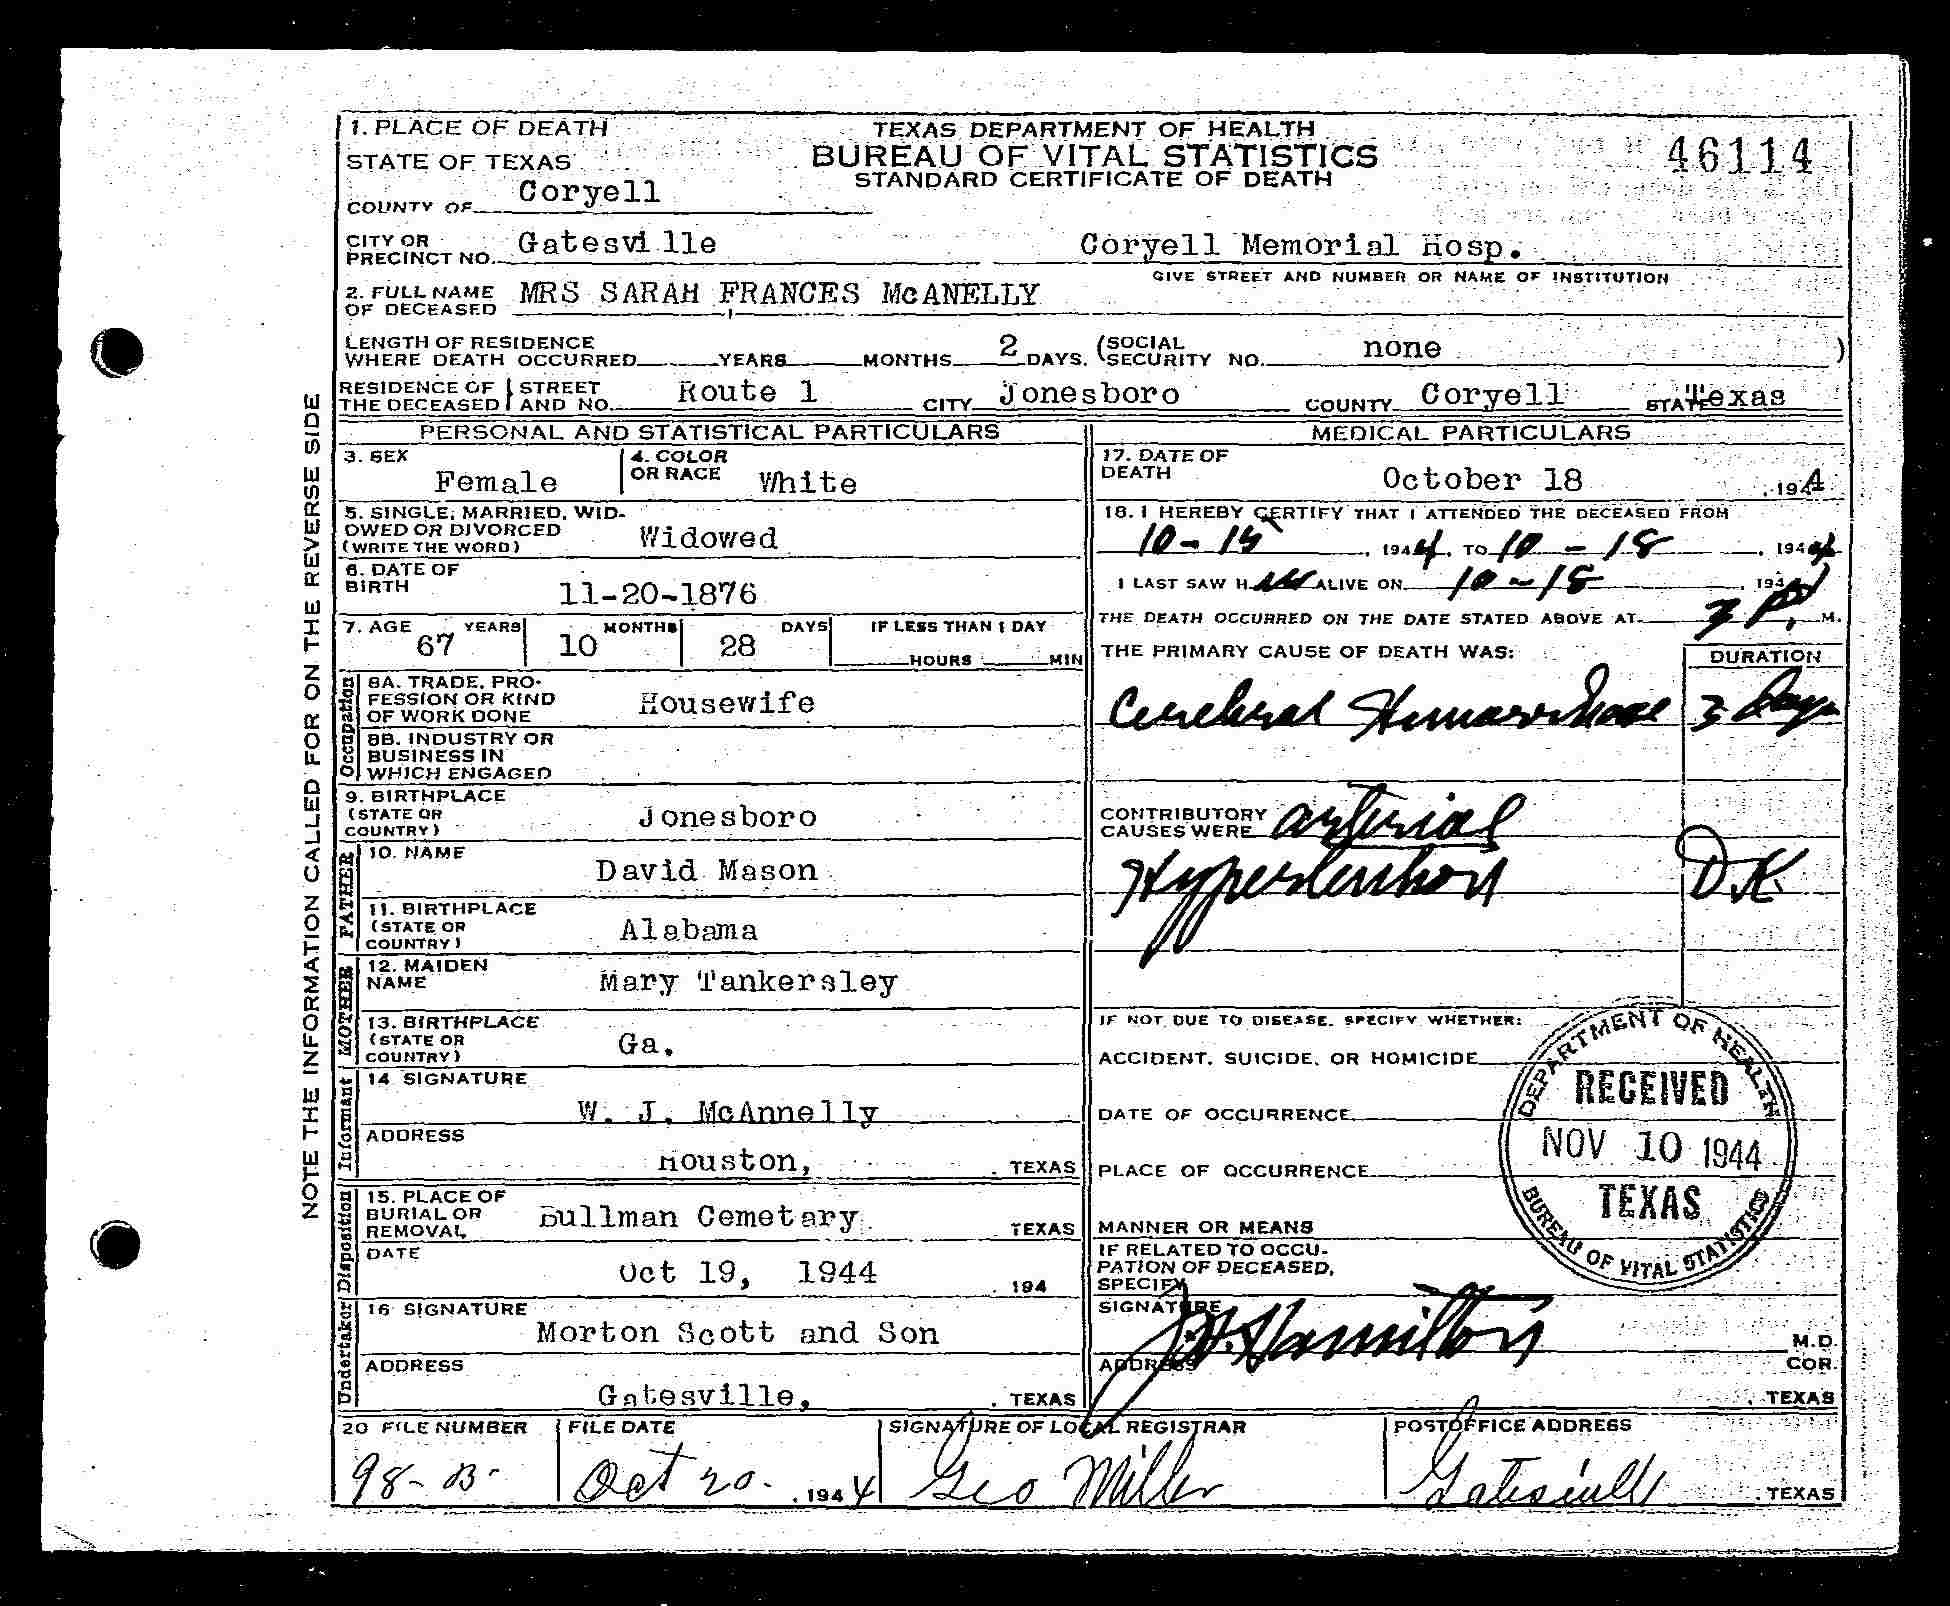 1. PLACE OF DEATH
TEXAS DEPARTMENT OF HEALTH
STATE OF TEXAS
BUREAU OF VITAL STATISTICS
46114
STANDARD CERTIFICATE OF DEATH
COUNTY OF Coryell
CITY OR PRECINCT NO. Gatesville Coryell Memorial Hosp.
GIVE STREET AND NUMBER OR NAME OF INSTITUTION
2. FULL NAME OF DECEASED MRS SARAH FRANCES McANELLY
LENGTH OF RESIDENCE WHERE DEATH OCCURRED YEARS MONTHS 2 DAYS. (SOCIAL SECURITY NO. none )
RESIDENCE OF THE DECEASED STREET AND NO. Route 1 CITY Jonesboro COUNTY Coryell STATE Texas
PERSONAL AND STATISTICAL PARTICULARS
3. SEX Female
4. COLOR OR RACE White
5. SINGLE, MARRIED, WIDOWED OR DIVORCED (WRITE THE WORD) Widowed
6. DATE OF BIRTH 11-20-1876
7. AGE 67 YEARS 10 MONTHS 28 DAYS IF LESS THAN 1 DAY HOURS MIN
Occupation
8A. TRADE, PROFESSION OR KIND OF WORK DONE Housewife
8B. INDUSTRY OR BUSINESS IN WHICH ENGAGED
9. BIRTHPLACE (STATE OR COUNTRY) Jonesboro
FATHER
10. NAME David Mason
11. BIRTHPLACE (STATE OR COUNTRY) Alabama
MOTHER
12. MAIDEN NAME Mary Tankersley
13. BIRTHPLACE (STATE OR COUNTRY) Ga.
Informant
14 SIGNATURE W. J. McAnnelly
ADDRESS Houston, . TEXAS
Disposition
15. PLACE OF BURIAL OR REMOVAL Bullman Cemetary TEXAS
DATE Oct 19, 1944 . 194
Undertaker
16 SIGNATURE Morton Scott and Son
ADDRESS Gatesville, . TEXAS
MEDICAL PARTICULARS
17. DATE OF DEATH October 18 , 1944
18. I HEREBY CERTIFY THAT I ATTENDED THE DECEASED FROM
10-15 , 1944, TO 10-18 , 1944
I LAST SAW H er ALIVE ON 10-18 , 194
THE DEATH OCCURRED ON THE DATE STATED ABOVE AT 3 P. M.
THE PRIMARY CAUSE OF DEATH WAS: DURATION
Cerebral Hemorrhage 3 days
CONTRIBUTORY CAUSES WERE arterial
Hypertension D.K.
IF NOT DUE TO DISEASE, SPECIFY WHETHER:
ACCIDENT, SUICIDE, OR HOMICIDE
DATE OF OCCURRENCE
PLACE OF OCCURRENCE
MANNER OR MEANS
IF RELATED TO OCCUPATION OF DECEASED, SPECIFY
DEPARTMENT OF HEALTH
RECEIVED
NOV 10 1944
TEXAS
BUREAU OF VITAL STATISTICS
SIGNATURE Hamilton M.D.
COR.
ADDRESS . TEXAS
20 FILE NUMBER 98-B-
FILE DATE Oct 20. , 1944
SIGNATURE OF LOCAL REGISTRAR Geo Miller
POSTOFFICE ADDRESS Gatesville . TEXAS
NOTE THE INFORMATION CALLED FOR ON THE REVERSE SIDE